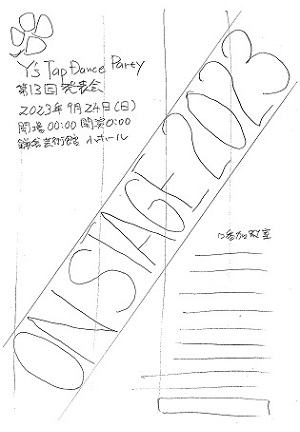 Y's Tap Dance Party
第13回 発表会
2023年 9月24日(日)
開場 00:00 開演 0:00
鎌倉芸術館 小ホール
ON STAGE 2023
□参加教室